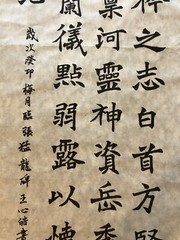 之志白首方堅
稟河靈神資岳秀
蘭儀點弱露以懷
歲次癸卯梅月臨張猛龍碑王心書